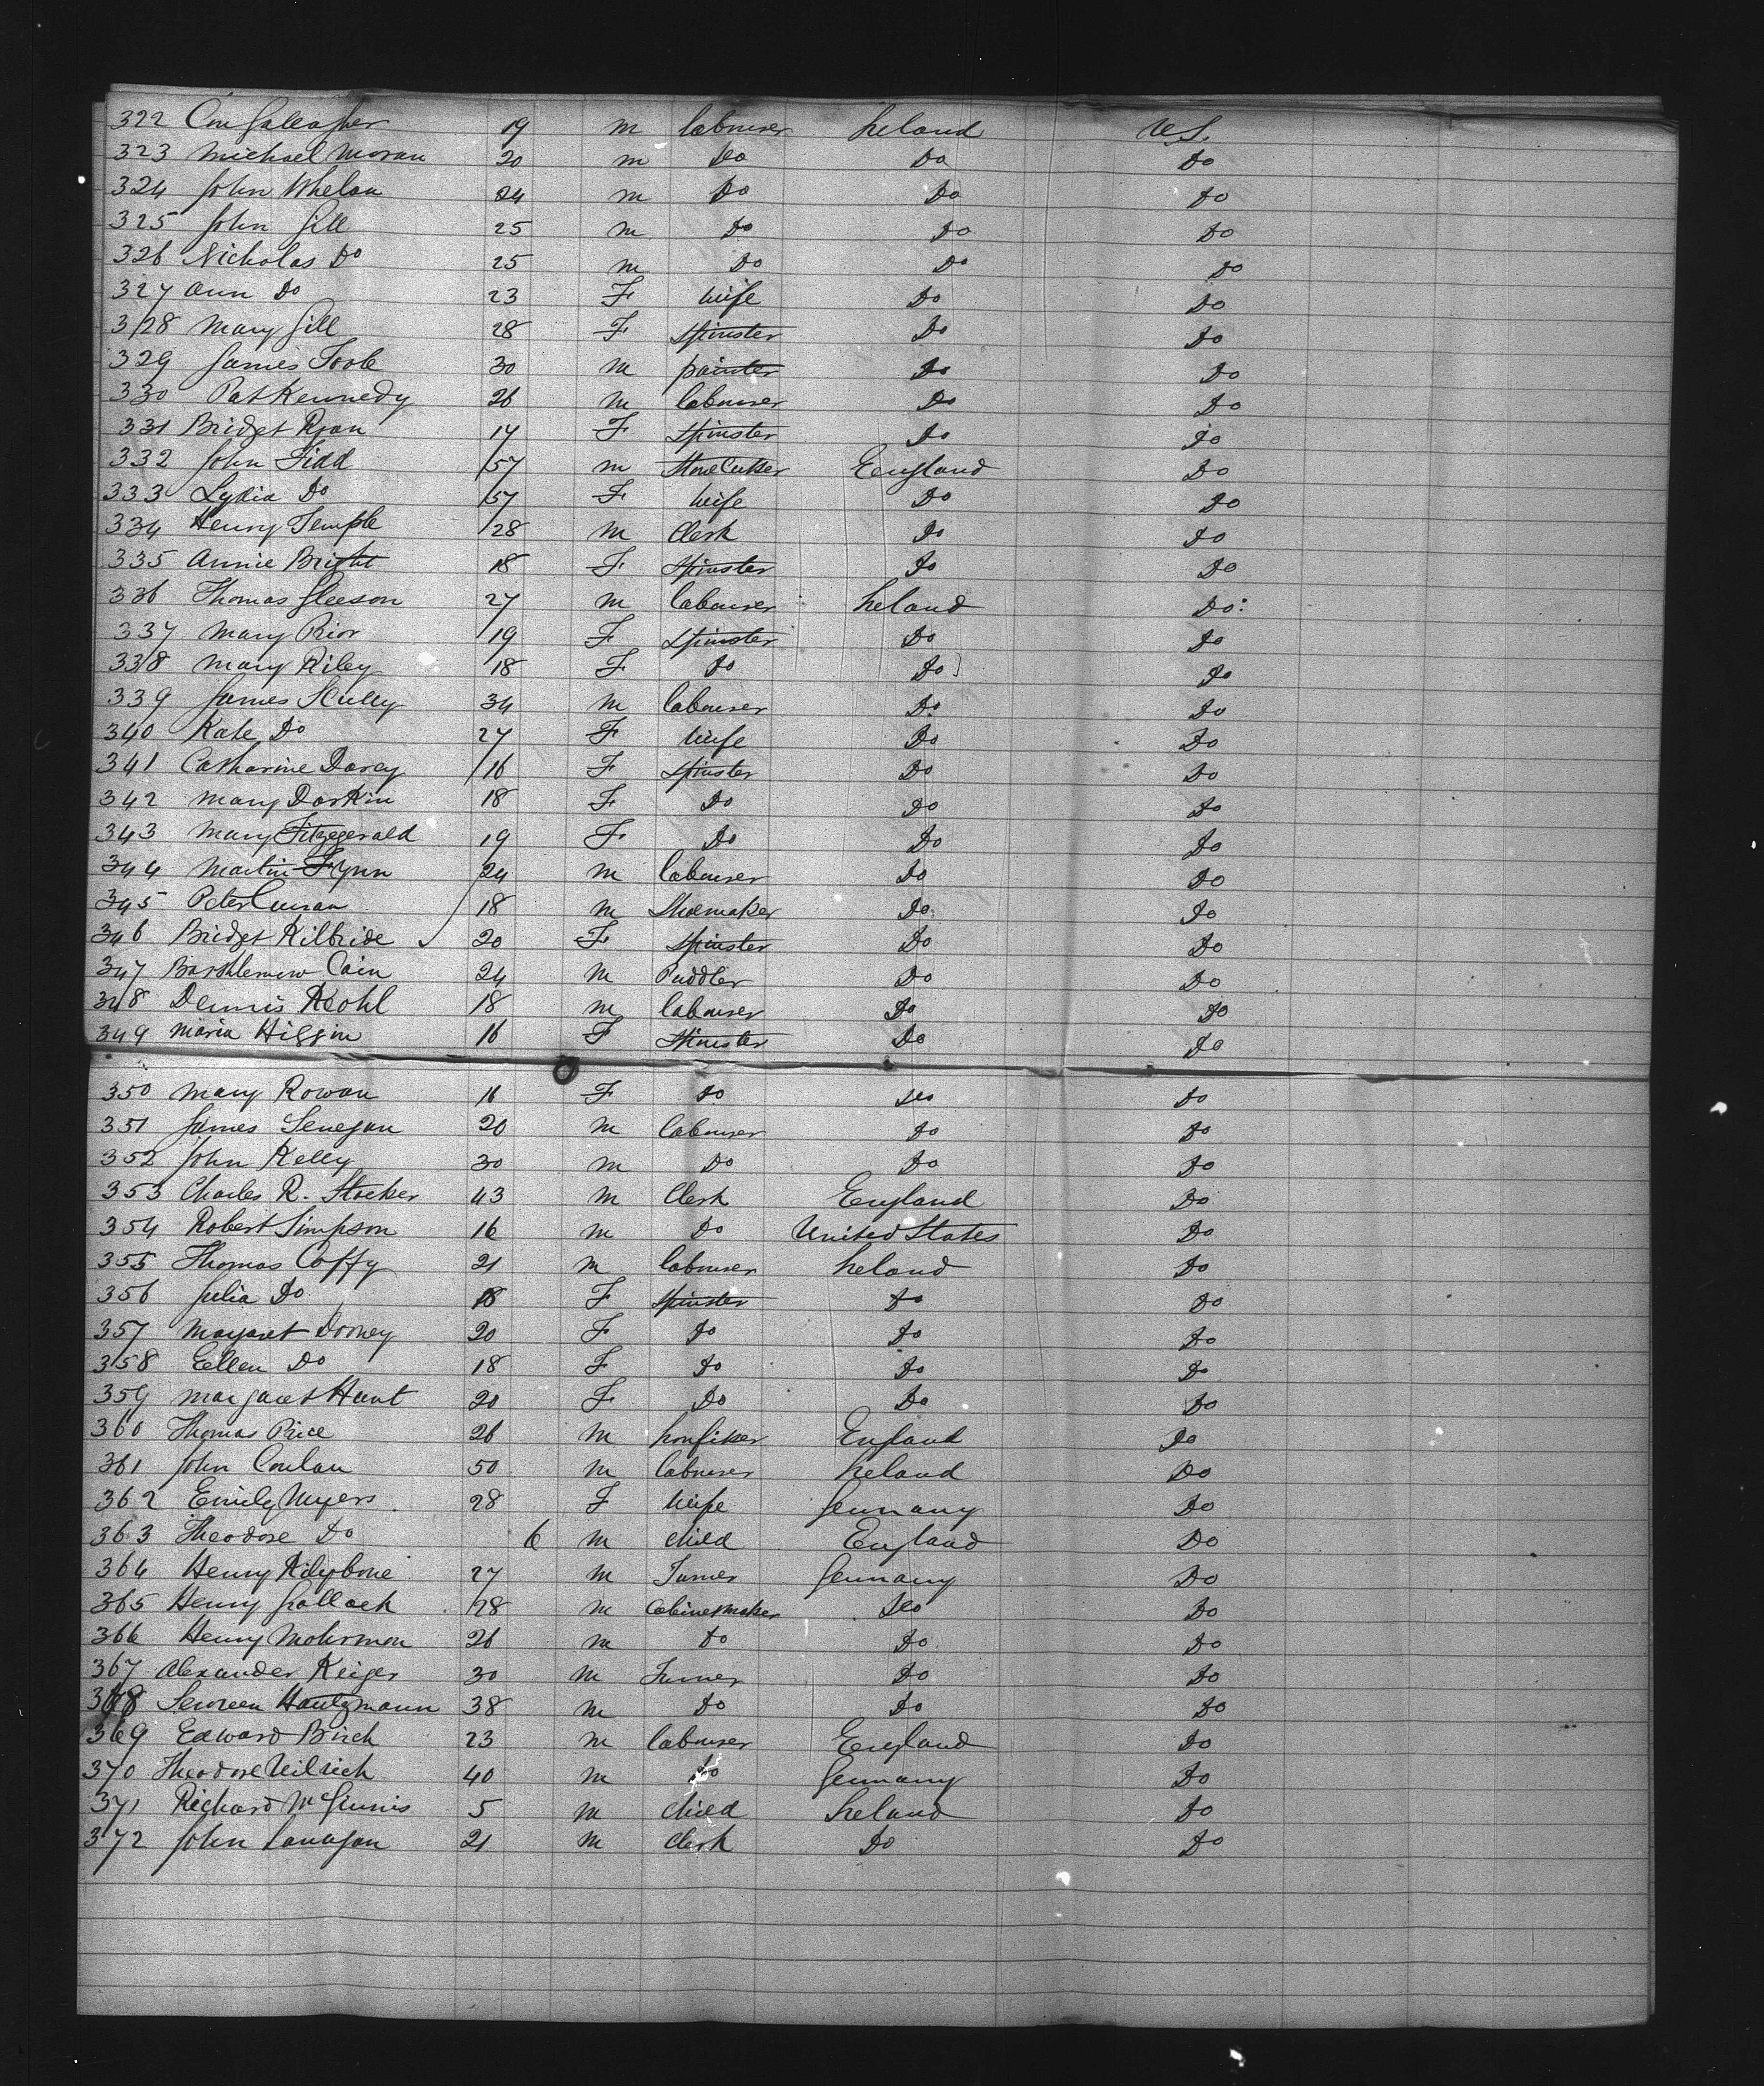 322 Con Gallagher 19 m labourer Ireland U.S.
323 Michael Moran 20 m Do Do Do
324 John Whelan 24 m Do Do Do
325 John Gill 25 m Do Do Do
326 Nicholas Do 25 m Do Do Do
327 Ann Do 23 F Wife Do Do
328 Mary Gill 28 F Spinster Do Do
329 James Toole 30 m painter Do Do
330 Pat Kennedy 26 m labourer Do Do
331 Bridget Ryan 17 F Spinster Do Do
332 John Fidd 57 m Stone Cutter England Do
333 Lydia Do 57 F Wife Do Do
334 Henry Temple 28 m Clerk Do Do
335 Annie Bright 18 F Spinster Do Do
336 Thomas Gleeson 27 m labourer Ireland Do
337 Mary Prior 19 F Spinster Do Do
338 Mary Riley 18 F Do Do Do
339 James Scully 34 m labourer Do Do
340 Kate Do 27 F Wife Do Do
341 Catharine Darcy 16 F Spinster Do Do
342 Mary Darkin 18 F Do Do Do
343 Mary Fitzgerald 19 F Do Do Do
344 Martin Flynn 24 m labourer Do Do
345 Peter Curran 18 m Shoemaker Do Do
346 Bridget Kilbride 20 F Spinster Do Do
347 Barthlemew Cain 24 m Puddler Do Do
348 Dennis 18 m labourer Do Do
349 Maria Higgin 16 F Spinster Do Do
350 Mary Rowan 16 F Do Do Do
351 James Senegan 20 m labourer Do Do
352 John Kelly 30 m Do Do Do
353 Charles R. Stocker 43 m Clerk England Do
354 Robert Simpson 16 m Do United States Do
355 Thomas Coffy 21 m labourer Ireland Do
356 Julia Do 18 F Spinster Do Do
357 Margaret Dooney 20 F Do Do Do
358 Ellen Do 18 F Do Do Do
359 Margaret Hunt 20 F Do Do Do
360 Thomas Price 26 m England Do
361 John Conlan 50 m labourer Ireland Do
362 Emily Myers 28 F Wife Germany Do
363 Theodore Do 6 m child England Do
364 Henry 27 m Turner Germany Do
365 Henry Gallach 28 m Cabinetmaker Do Do
366 Henry Mohrman 26 m Do Do Do
367 Alexander Keiger 30 m Turner Do Do
368 Hautzmann 38 m Do Do Do
369 Edward Birch 23 m labourer England Do
370 Theodore 40 m Do Germany Do
371 Richard McGinnis 5 m child Ireland Do
372 John Lanagan 21 m Clerk Do Do